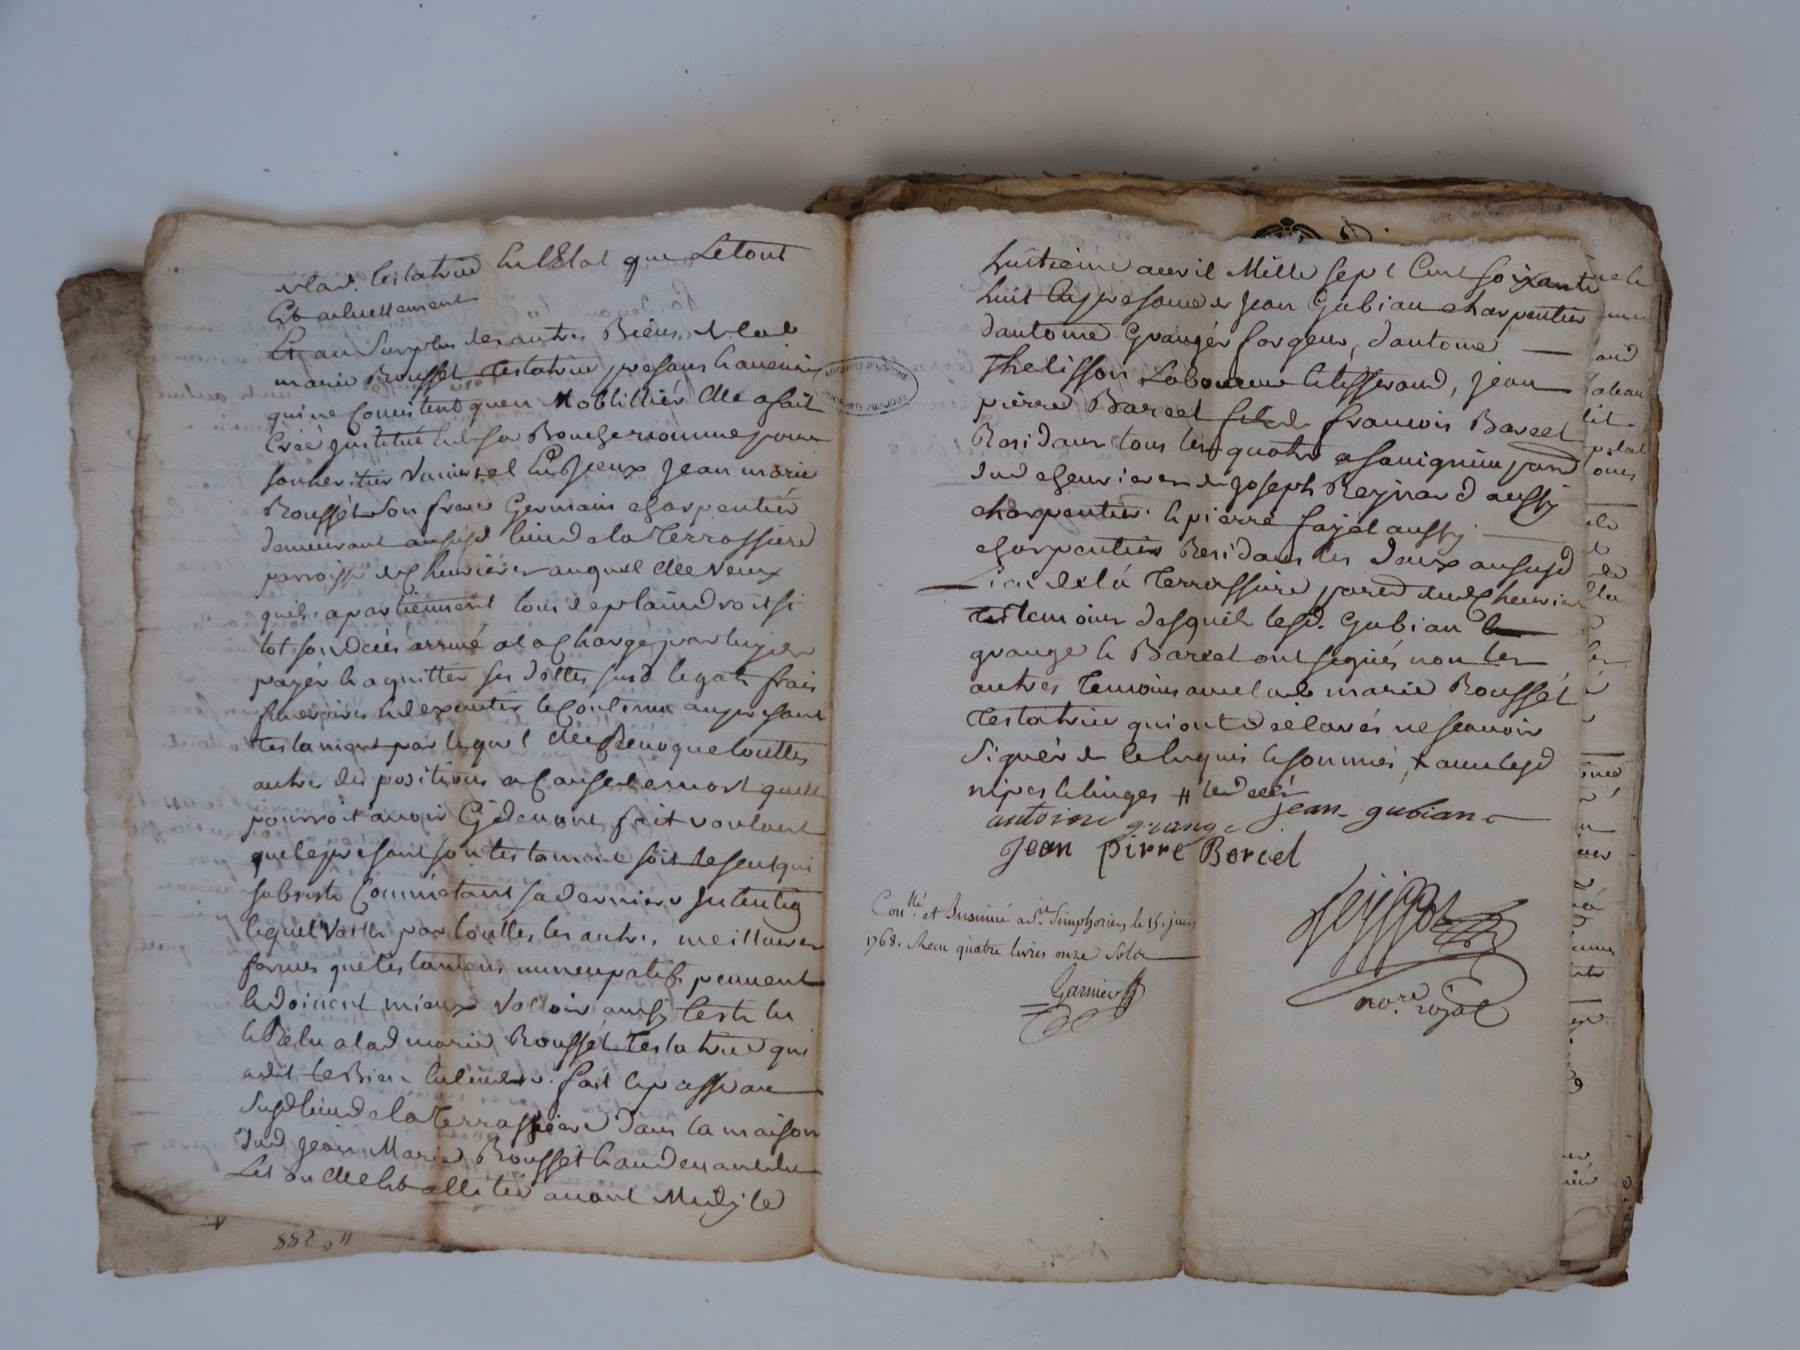 et lad. testatrice en l'Etat que Letout
Est actuellement
Et au Surplus des autres Biens de lad
marie Roussét testatrice presans & avenirs
qui ne Consistent quen Mobillier elle a fait
Créé institué et de sa Bouche nommé pour
son heritier Universel Led Sieur Jean marie
Roussét son frere Germain charpentier
demeurant au susd lieu de la Terrassiere
parroisse de Cheuvrieres auquel elle veux
quils apartiennent tous de plain droit si
tot son decès arrivé a la Charge par luy de
payér & aquitter ses dettes susd legats frais
funeraires et dexecuter le Contenu au present
testament par lequel elle Revoque touttes
autres dispositions a Cause de mort quelle
pourroit avoir Cy devant fait voulant
que le present son testament soit le seul qui
subsiste Comme étant sa derniere Intention
lequel vaille par touttes les autres meilleures
formes que testamens nuncupatifs peuvent
& doivent mieux Valloir ainsy testé lu
& Relu a lad marie Roussét Testatrice qui
a dit le Bien entendre. fait & passé au
Susd lieu de la Terrassiere dans la maison
dud Jean Marie Roussét
Lit ou elle est allitée avant Midy le
huitieme avril Mille sept Cent soixante
huit En presance de Jean Gubian charpentier
dantoine Grangér forgeur, dantoine
Thelisson Laboureur & tisserand, Jean
pierre Barcel fils de francois Barcel
Residans tous les quatre a
dud cheuvrieres de Joseph Reynard aussy
charpentier & pierre fayel aussy
charpentier Residans les deux au susd
Lieu de la Terrassiere parr d de Cheuvrieres
temoins desquels lesd. Gubian
grange & Barcel ont signés non les
autres temoins avec lade marie Roussét
Testatrice qui ont declarés ne scavoir
signér de ce Enquis & sommés, x avec lesd
nipes & linges #
antoine grange jean gubian
Jean pirre Borcel
Con.llé et Insinué a St. Simphorien le 15. juin
1768. Recu quatre livres onze Sols
Garnier
nore. royal